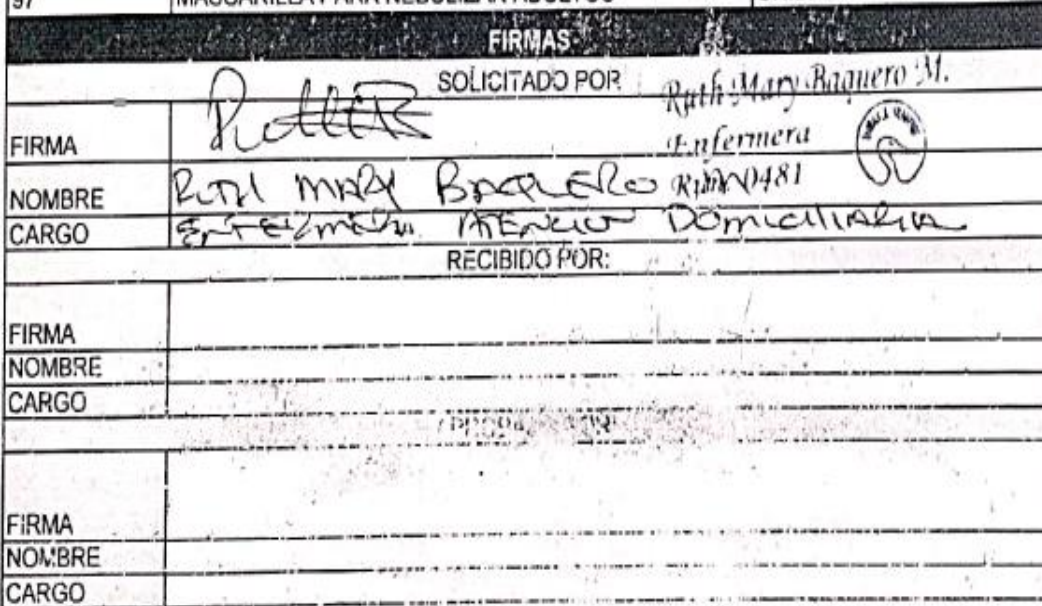 97 MASCARILLA PARA NEBULIZAR ADULTOS
FIRMAS
SOLICITADO POR
Ruth Mary Baquero M.
Enfermera
0481
FIRMA
NOMBRE RUTH MARY BAQUERO
CARGO ENFERMERA ATENCION DOMICILIARIA
RECIBIDO POR:
FIRMA
NOMBRE
CARGO
FIRMA
NOMBRE
CARGO